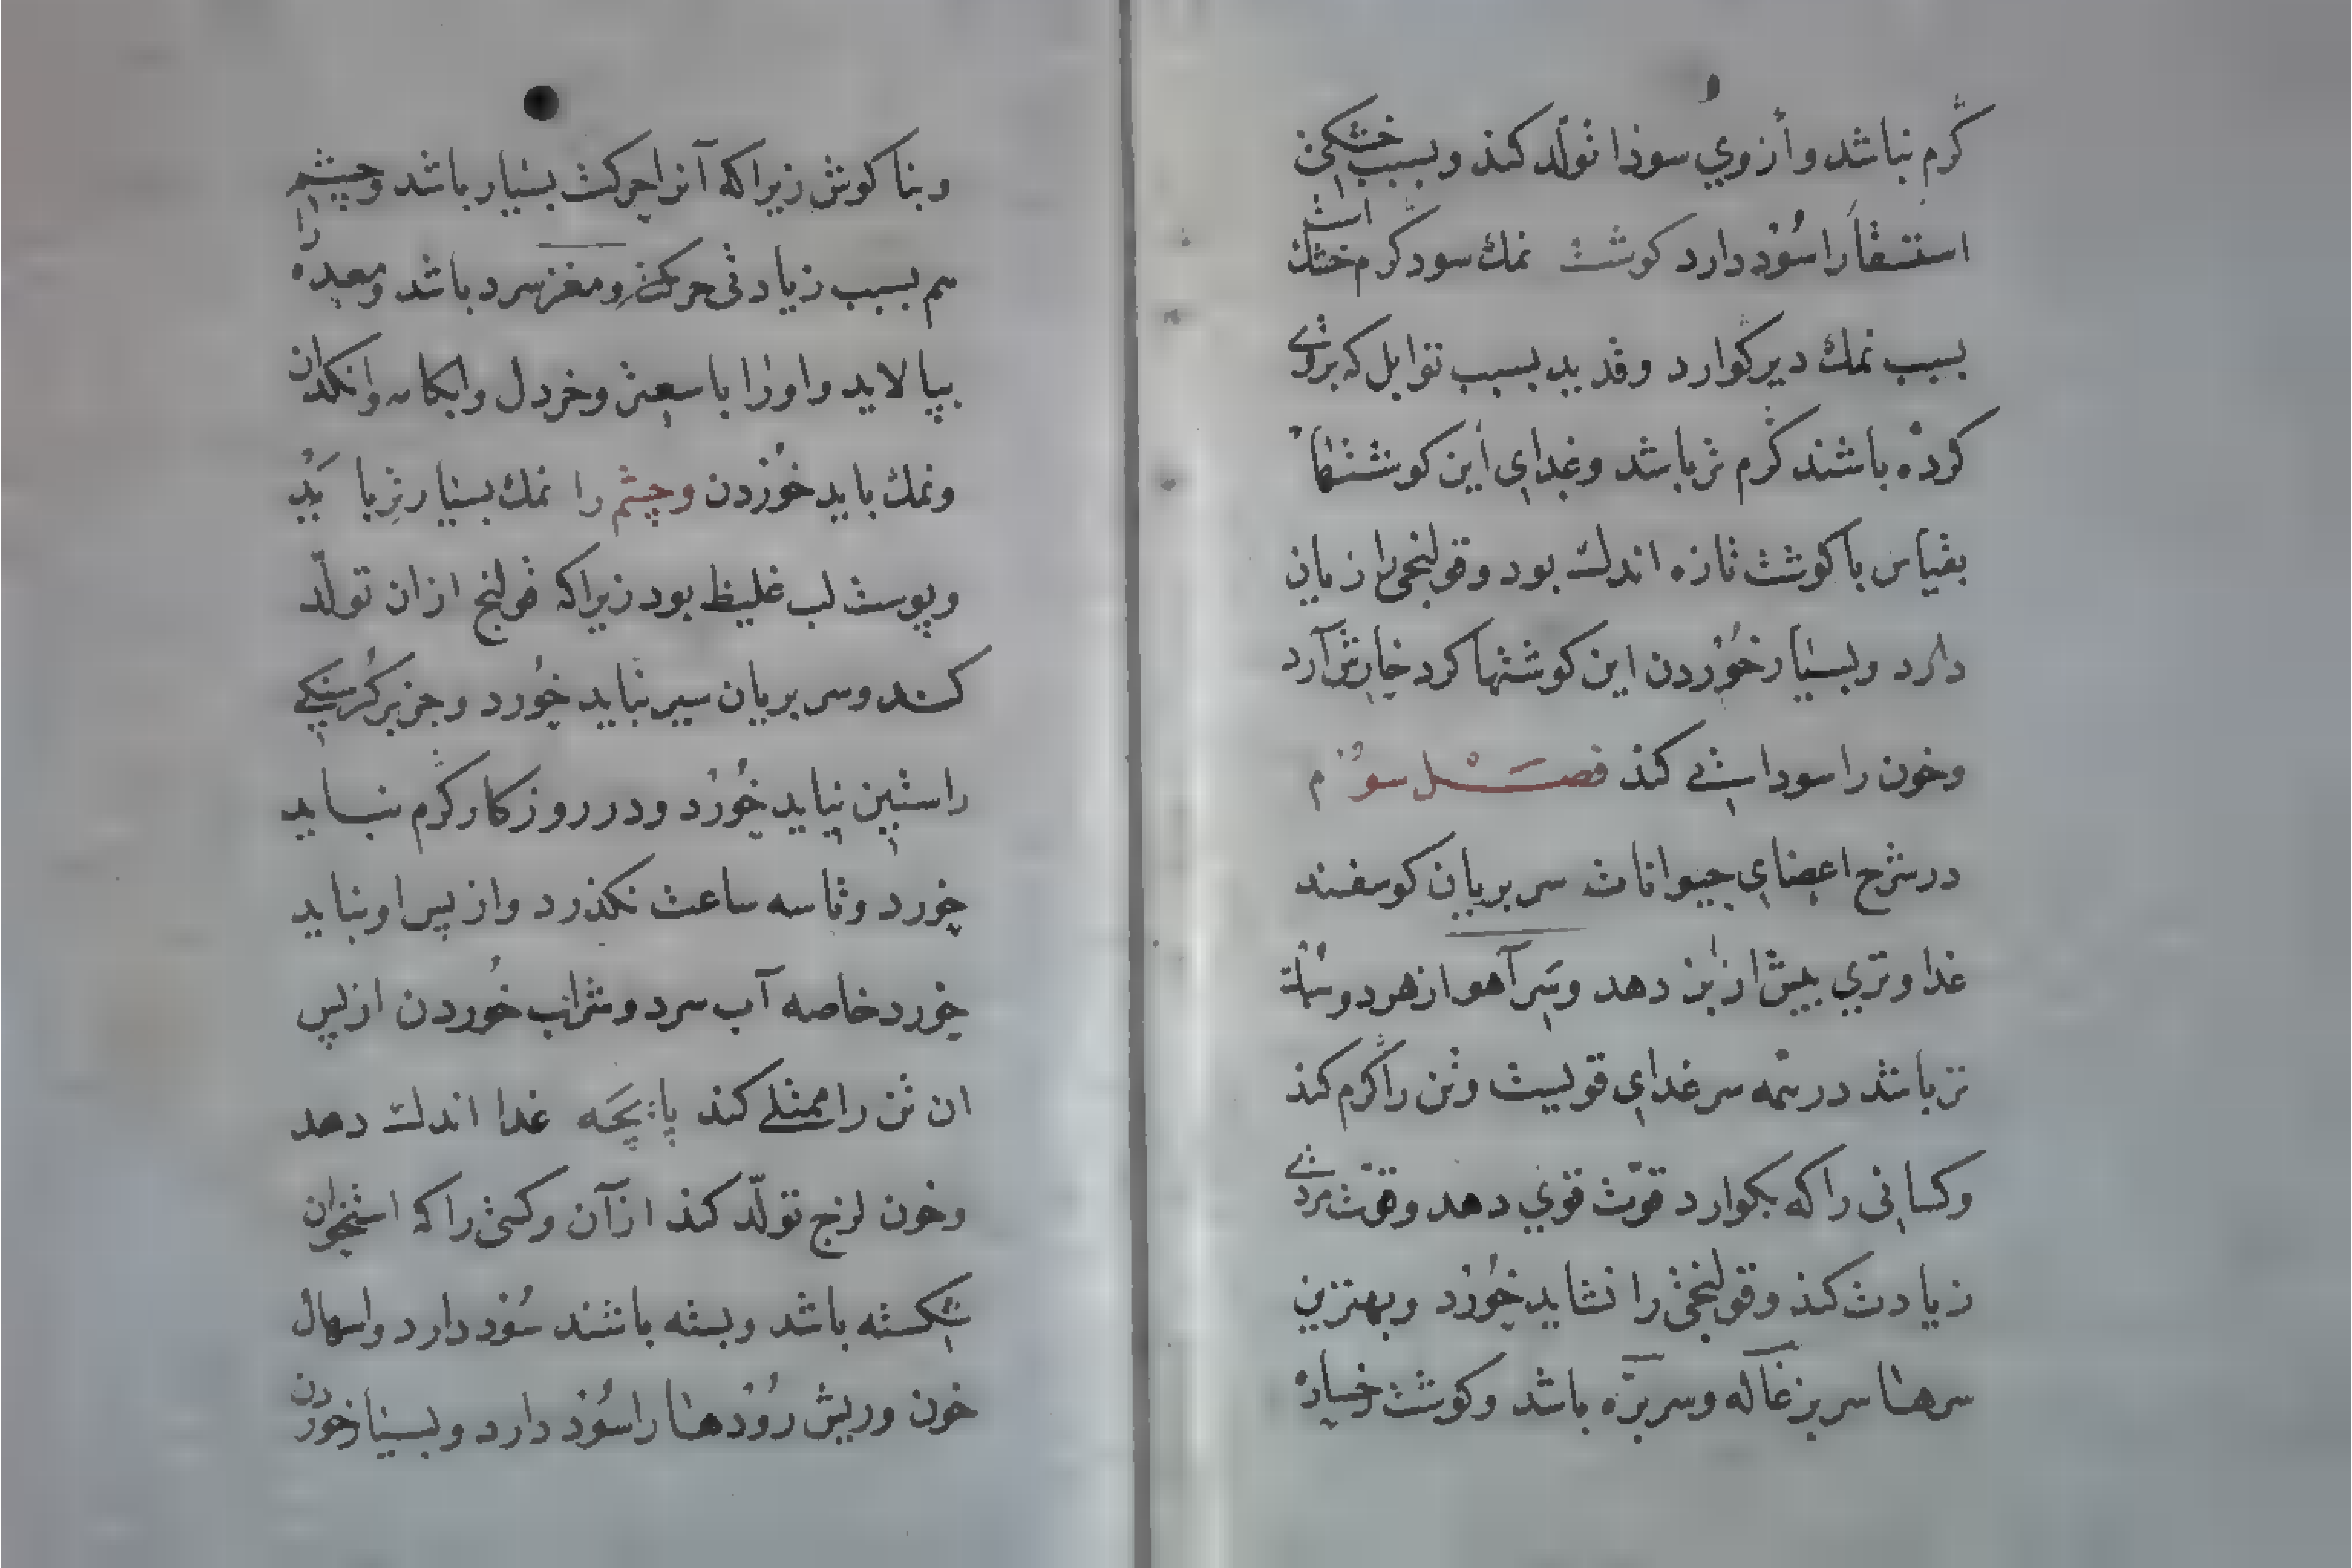 گرم نباشد و از وي سودا تولّد كند وبسبب خشكى
استسقا را سُود دارد كوشت نمك سود گرم خشك است
بسبب نمك دير گوارد وقديد بسبب توابل كه بروى
كرده باشند گرم تر باشد وغداي اين كوشتها
بقياس با كوشت تازه اندك بود وقولنجى را زيان
دارد وبسيار خُوردن اين كوشتها كرد خارش آرد
وخون را سودا شى كند فصَـْـل سوُم
در شرح اعضاي حيوانات سر بريان كوسفند
غدا وتري بيش از بز دهد وسَر آهو از هر دو سُبك
تر باشد در همه سر غداي قويست وتن را گرم كند
وكسانى را كه بكوارد قوّت قوي دهد وقوّت مردى
زيادت كند وقولنجى را نشايد خُورد وبهترين
سرها سر بزغاله وسر برّه باشد وكوشت رخساره
وبنا كوش زيرا كه آنرا حركت بسيار باشد وچشم را
هم بسبب زيادتى حركت ومغز سرد باشد ومعده
بپالايد واورا با سعتر وخردل وابكامه وانكدان
ونمك بايد خُوردن وچشم را نمك بسيار تر بايد
وپوست لب غليظ بود زيرا كه قولنج ازان تولّد
كند وسر بريان سير نبايد خُورد وجز بر گُرسنكى
راستين نبايد خُورد ودر روزكار گرم نبايد
خورد وتا سه ساعت نكذرد واز پس او نبايد
خورد خاصه آب سرد وشراب خُوردن از پس
ان تن را ممتلى كند پاچَه غدا اندك دهد
وخون لزج تولّد كند از آن وكسى را كه استخوان
شكسته باشد وبسته باشند سُود دارد واسهال
خون وريش رُودها را سُود دارد وبسيار خوردن